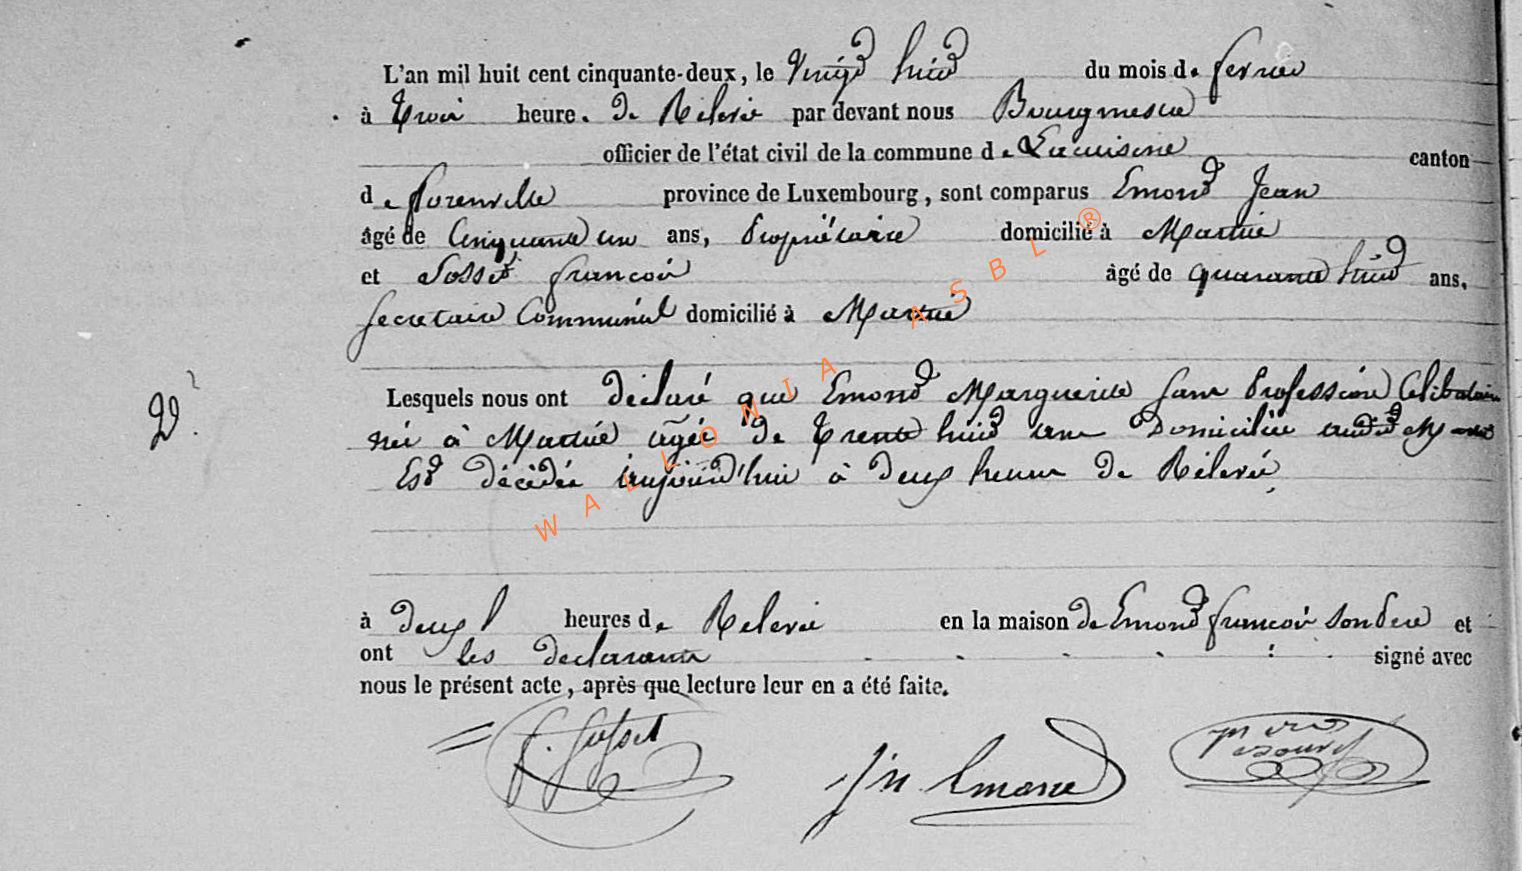 L'an mil huit cent cinquante-deux, le Vingt huit du mois de fevrier
à Trois heure. De Relevé par devant nous Bourgmestre
officier de l'état civil de la commune de Lacuisine canton
de florenville province de Luxembourg, sont comparus Emond Jean
âgé de Cinquante un ans, Propriétaire domicilié à Martué
et Sosset francois âgé de quarante huit ans,
Secretaire Communal domicilié à Martué
Lesquels nous ont Déclaré que Emond Marguerite Sans Profession Celibataire
2d.
née à Martué agée de Trente huit ans Domiciliée audit Martué
Est décédée aujourd'hui à deux heures de Relevé,
à deux heures de Relevé en la maison de Emond francois son Pere et
ont les declarants signé avec
nous le présent acte, après que lecture leur en a été faite.
f. Sosset Jn Emond
WALLONIA ASBL ®